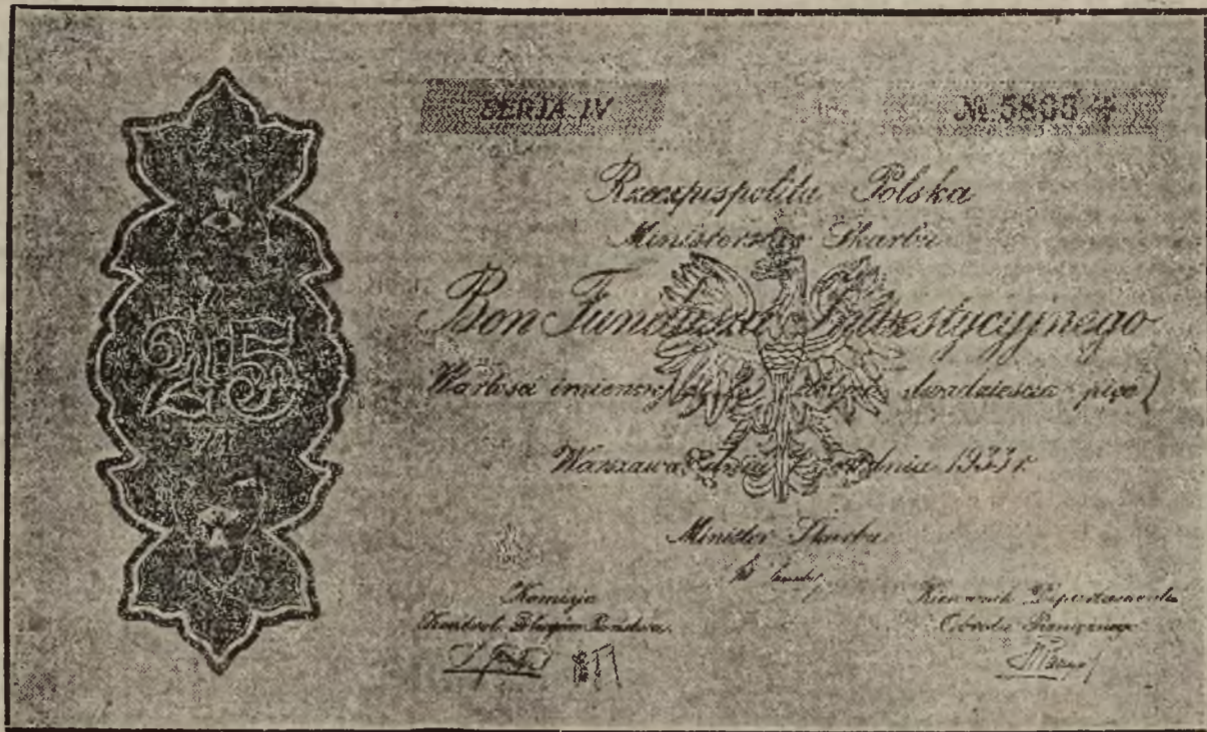 SERJA IV
№ 5800
Rzeczpospolita Polska
Ministerstwo Skarbu
Bon Funduszu Inwestycyjnego
Wartość imienna złotych dwadzieścia pięć)
Warszawa, dnia grudnia 1933 r.
25
zł
Minister Skarbu
Komisja
Kontroli Długów Państwa
Kierownik Departamentu
Obrotu Pieniężnego